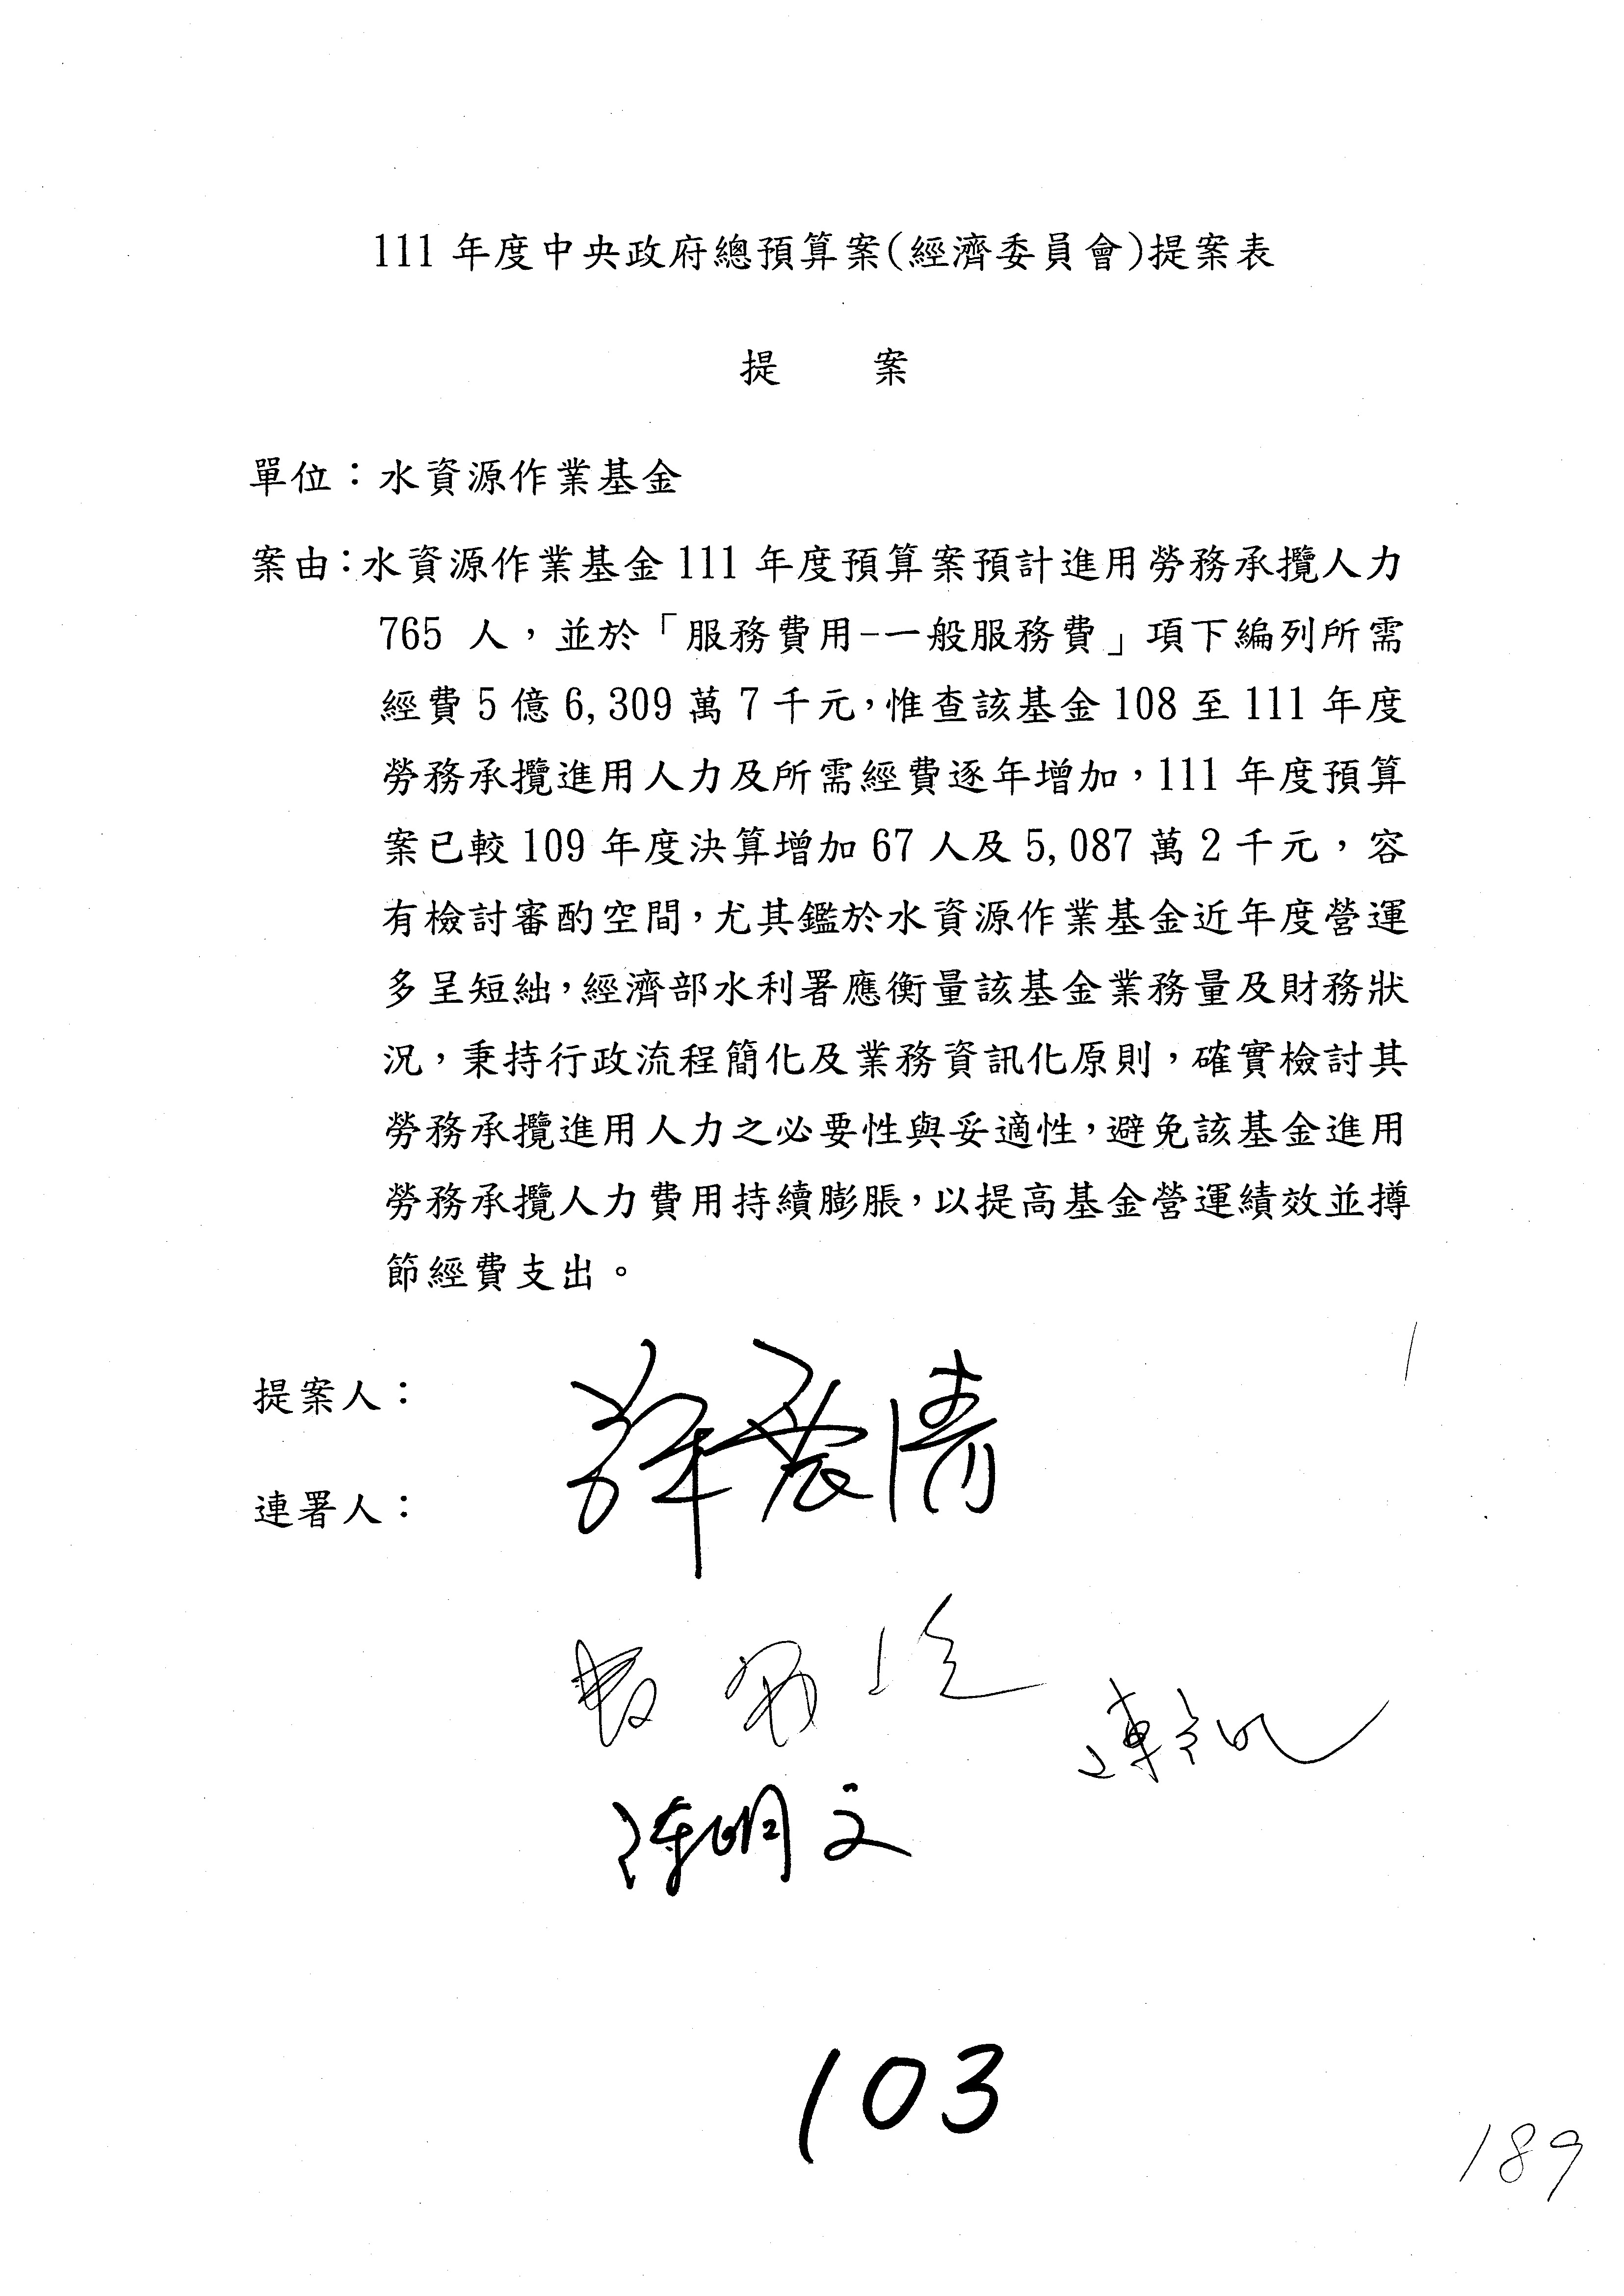 111 年度中央政府總預算案(經濟委員會)提案表
提 案
單位：水資源作業基金
案由：水資源作業基金 111 年度預算案預計進用勞務承攬人力
765 人，並於「服務費用-一般服務費」項下編列所需
經費 5 億 6,309 萬 7 千元，惟查該基金 108 至 111 年度
勞務承攬進用人力及所需經費逐年增加，111 年度預算
案已較 109 年度決算增加 67 人及 5,087 萬 2 千元，容
有檢討審酌空間，尤其鑑於水資源作業基金近年度營運
多呈短絀，經濟部水利署應衡量該基金業務量及財務狀
況，秉持行政流程簡化及業務資訊化原則，確實檢討其
勞務承攬進用人力之必要性與妥適性，避免該基金進用
勞務承攬人力費用持續膨脹，以提高基金營運績效並撙
節經費支出。
提案人：
連署人：
陳明文
103
189